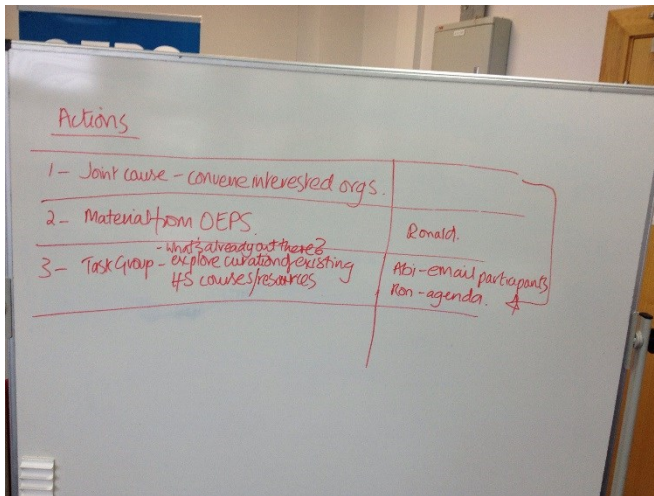 Actions
1 - Joint cause - convene interested orgs.
2 - Material from OEPS.
Ronald.
- what's already out there?
3 - Task Group - explore curation of existing
HS courses/resources
Abi - email participants
Ron - agenda.